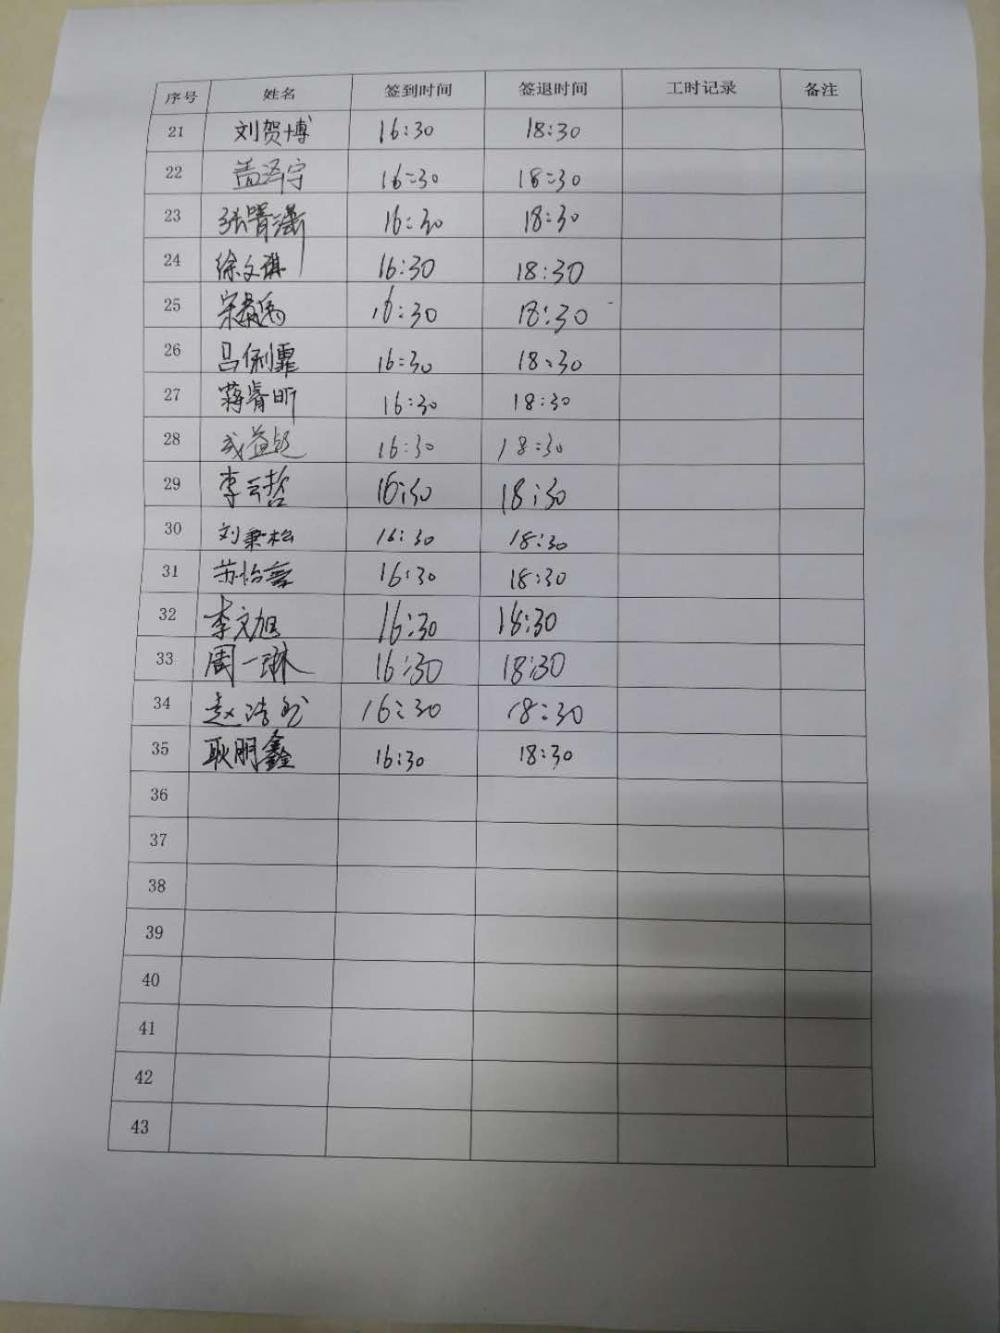 序号 姓名 签到时间 签退时间 工时记录 备注
21 刘贺博 16:30 18:30
22 盖泽宁 16:30 18:30
23 张 16:30 18:30
24 徐文琪 16:30 18:30
25 宋 16:30 18:30
26 吕俐霏 16:30 18:30
27 蒋睿昕 16:30 18:30
28 16:30 18:30
29 李云哲 16:30 18:30
30 刘秉松 16:30 18:30
31 苏怡 16:30 18:30
32 李文旭 16:30 18:30
33 周一琳 16:30 18:30
34 赵浩 16:30 18:30
35 耿明鑫 16:30 18:30
36
37
38
39
40
41
42
43